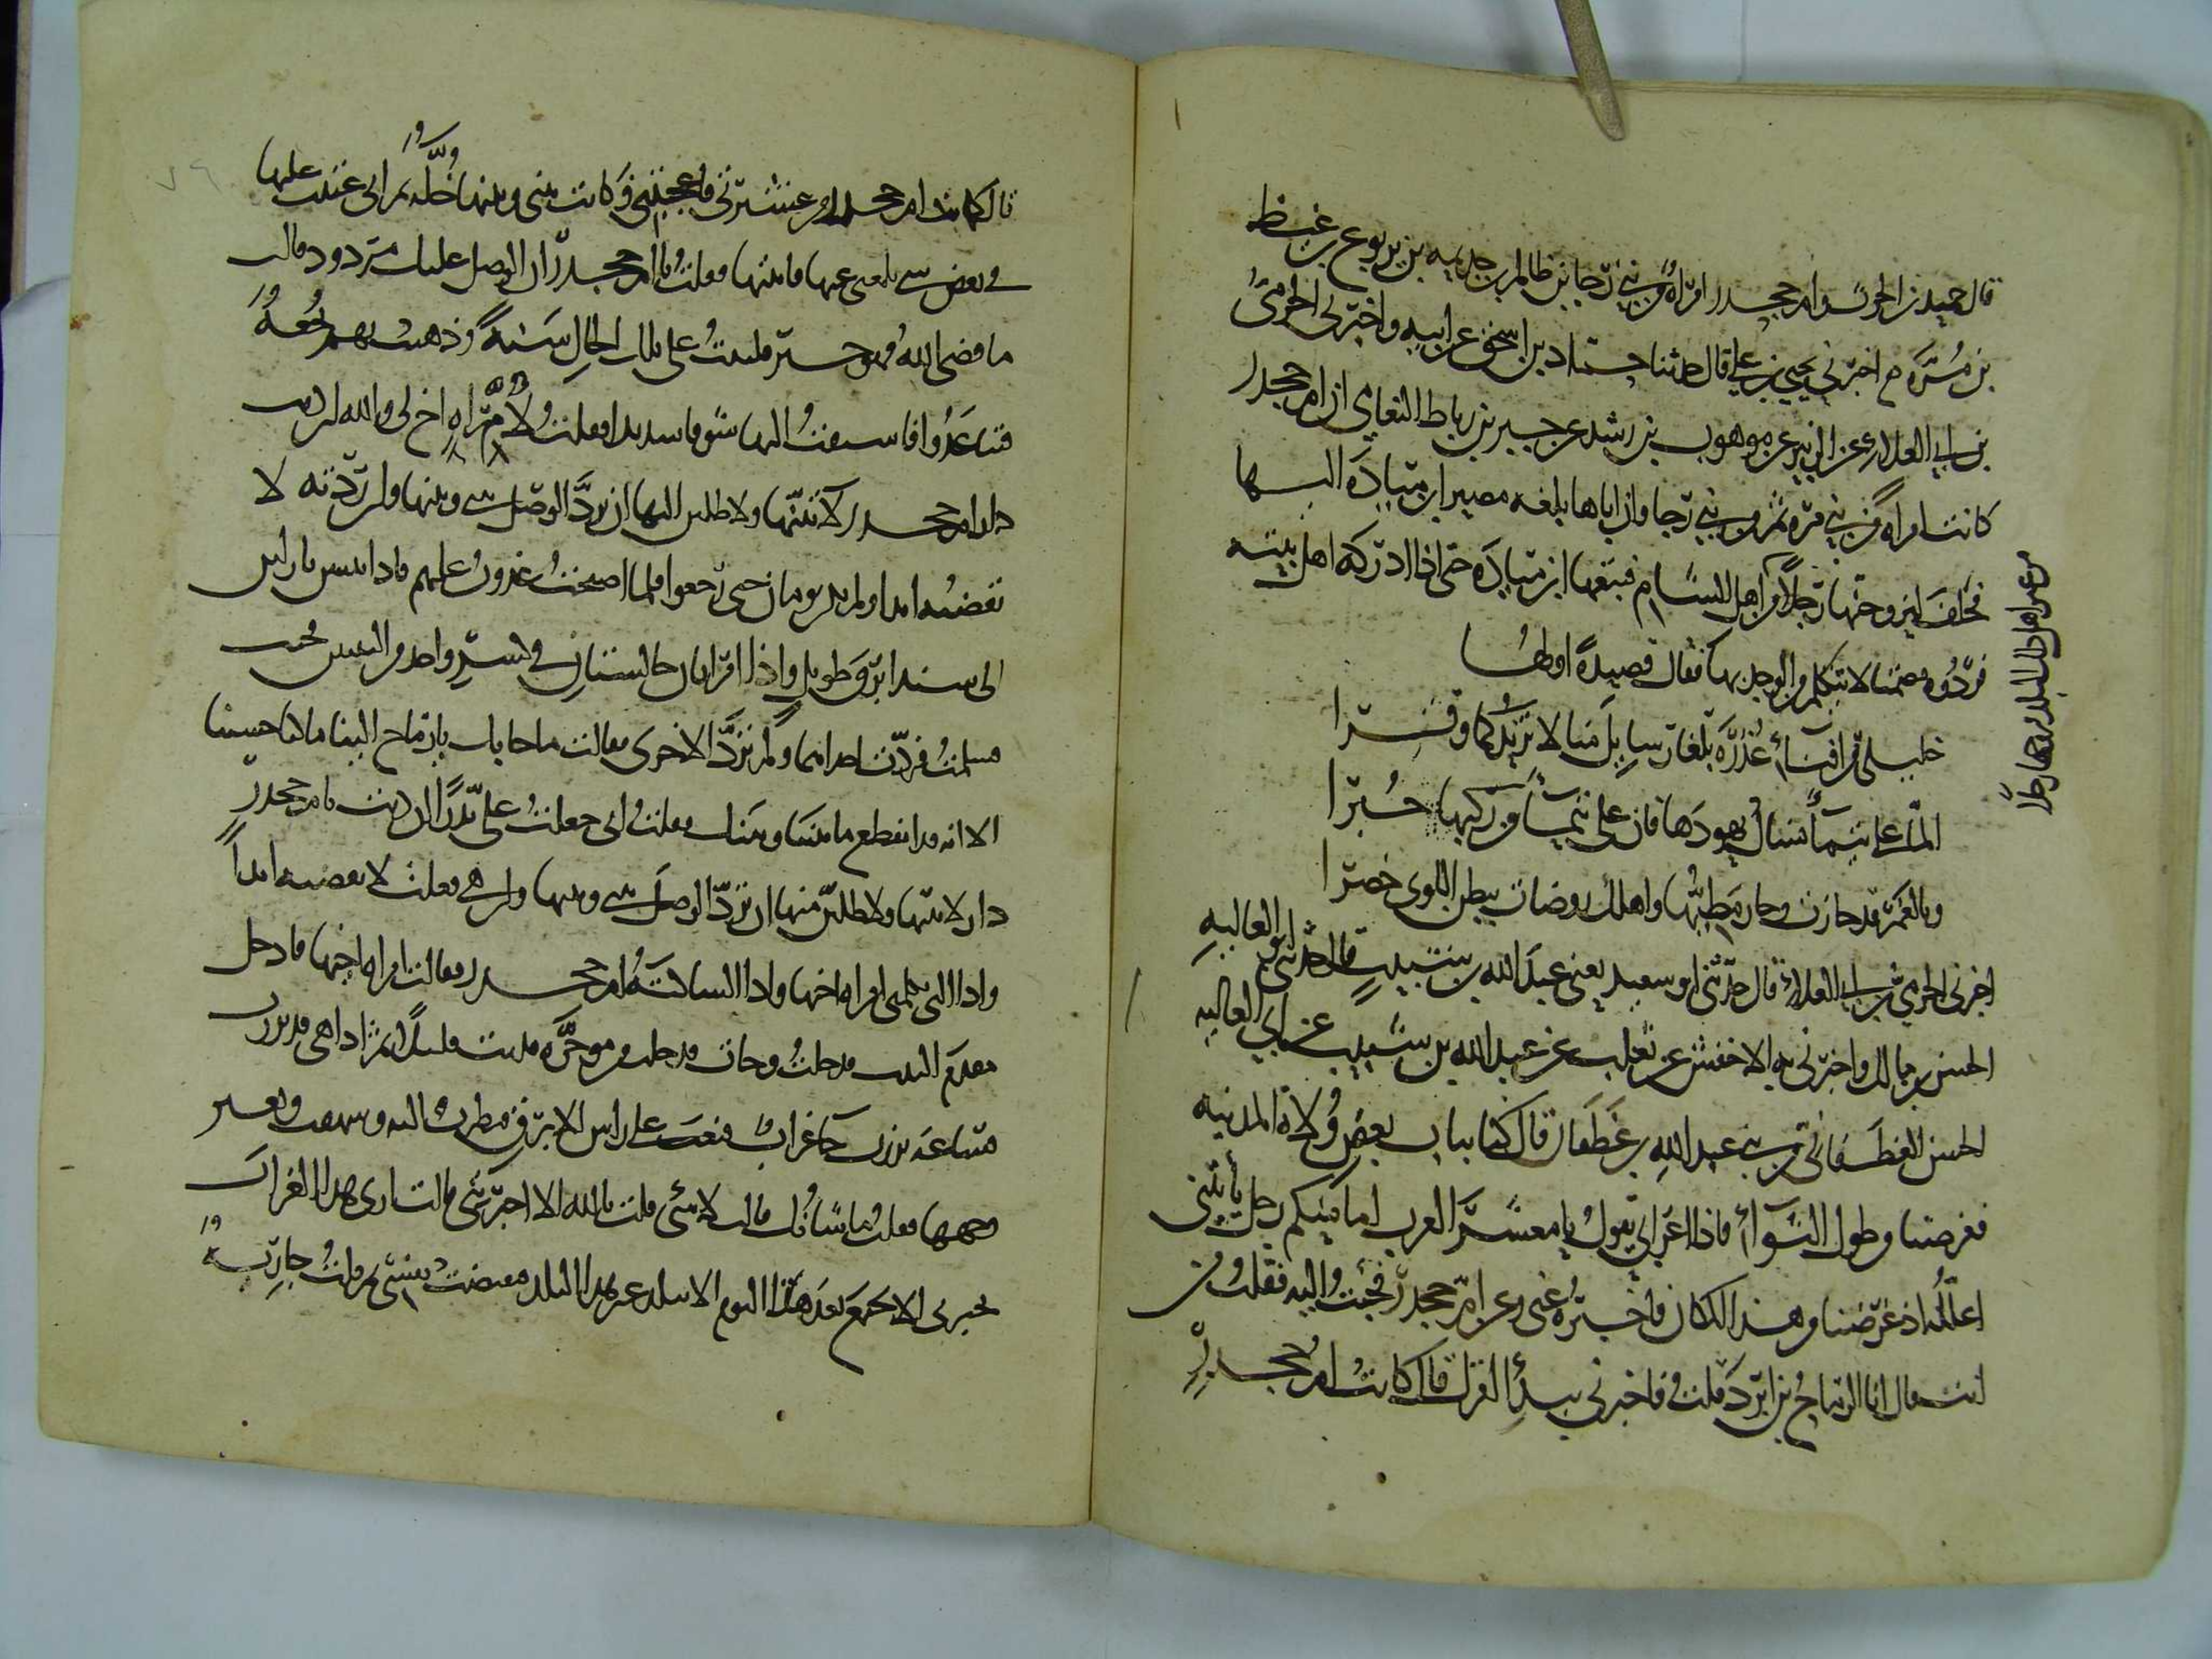 قال حميد بن الحرث وام جحدر امراة من بني رحا بن ظالم بن جذيمه بن يربوع بن غيظ
بن مُرَّة ح اخبرني يحيى بن علي قال حدثنا حماد بن اسحق عن ابيه واخبرني الحرميُّ
بن ابي العلاء عن الزبير عن موهوب بن رشيد عن جبير بن رباط النعامي ان ام جحدر
كانت امراة من بني مرة ثم من بني رحا وان اباها بلغه مصير ابن ميادَة اليها
فحلفَ ليزوجنّها رجلاً من اهل الشام فتبعها ابن ميادَة حتى اذا ادركه اهل بيته
فردُّوه مصمتا لا يتكلم من الوجد بها فقال قصيدةً اولها
خليلي من افناء عُذْرَة بلغا رسايل منا لا تزيدكما وقرا
المّا على تيماء نسال يهودَها فان على تيماء من ركبها خُبرا
وبالغمر قد جازت وجاز مطيّها واهلك روضات ببطن اللوى خضرا
اخبرني الحرمي بن ابي العلاء قال حدثني ابو سعيد يعني عبد الله بن شبيب قال حدثني ابو العالية
الحسن بن مالك واخبرني به الاخفش عن ثعلب عن عبد الله بن شبيب عن ابي العاليه
الحسن الغطفاني من بني عبد الله بن غَطَفان قال كنا بباب بعض وُلاة المدينه
فغرضنا من طول الثواء فاذا اعرابي يقولُ يا معشر العرب اما منكم رجل ياتيني
اعلّلُه اذ غرضنا من هذا المكان فاخبرُه عني وعن ام جحدر فجئت اليه فقلت من
انت قال انا الرماحُ بن ابرد قلت فاخبرني ببدءِ امركما قال كانت ام جحدرٍ
قال كانت ام جحدر من عشيرتي فاعجبتني فكانت بيني وبينها خُلَّة ثم اني عتبت عليها
في بعض شي بلغني عنها فاتيتها فقلتُ يا ام جحدر ان الوصل عليك مردود فقالت
ما قضى اللهُ فهو خير فلبثتُ على تلك الحالِ سَنَةً وذهبت بهم نُجعةٌ
فتباعدُوا فاشتقتُ اليها شوقا شديدا فقلتُ لامراةِ اخ لي والله لين دنت
دارنا من ام جحدر لآتينّها ولاطلبن اليها ان تردَّ الوصل بيني وبينها ولين ردّته لا
نقضتُه ابدا ولم يكن يومان حتى رجعوا فلما اصبحتُ غدوتُ عليهم فاذا انا ببيتين نازلين
الى سند ابرق طويل واذا امراتان جالستان في كساءٍ واحد بين البيتين فجيت
فسلمتُ فردّت احداهما ولم تردَّ الاخرى فقالت ما جا بك يا رماح الينا ما كنا حسبنا
الا انه قد انقطع ما بيننا وبينك فقلتُ اني جعلتُ علي نذراً لين دنت بام جحدر
دار لآتينّها ولاطلبنّ منها ان تردّ الوصلَ بيني وبينها ولين هي فعلت لا نقضته ابداً
واذا التي تكلمني امراة اخيها واذا الساكتةُ ام جحدر فقالت امراة اخيها فادخل
مقدم البيت فدخلتُ وجات فدخلت من موخَّره فدنت قليلاً ثم اذا هي قد برزت
فساعة برزت جا غرابٌ فنعبَ على راس الابرق فنظرت اليه وشهقت وتغير
وجهها فقلت ما شانُك قالت لا شي قلت بالله الا اخبرتني قالت ارى هذا الغراب
يخبرني الا نجتمعَ بعدَ هذا اليوم الا ببلد غير هذا البلد فتقبضت نفسي ثم قلتُ جاريةٌ